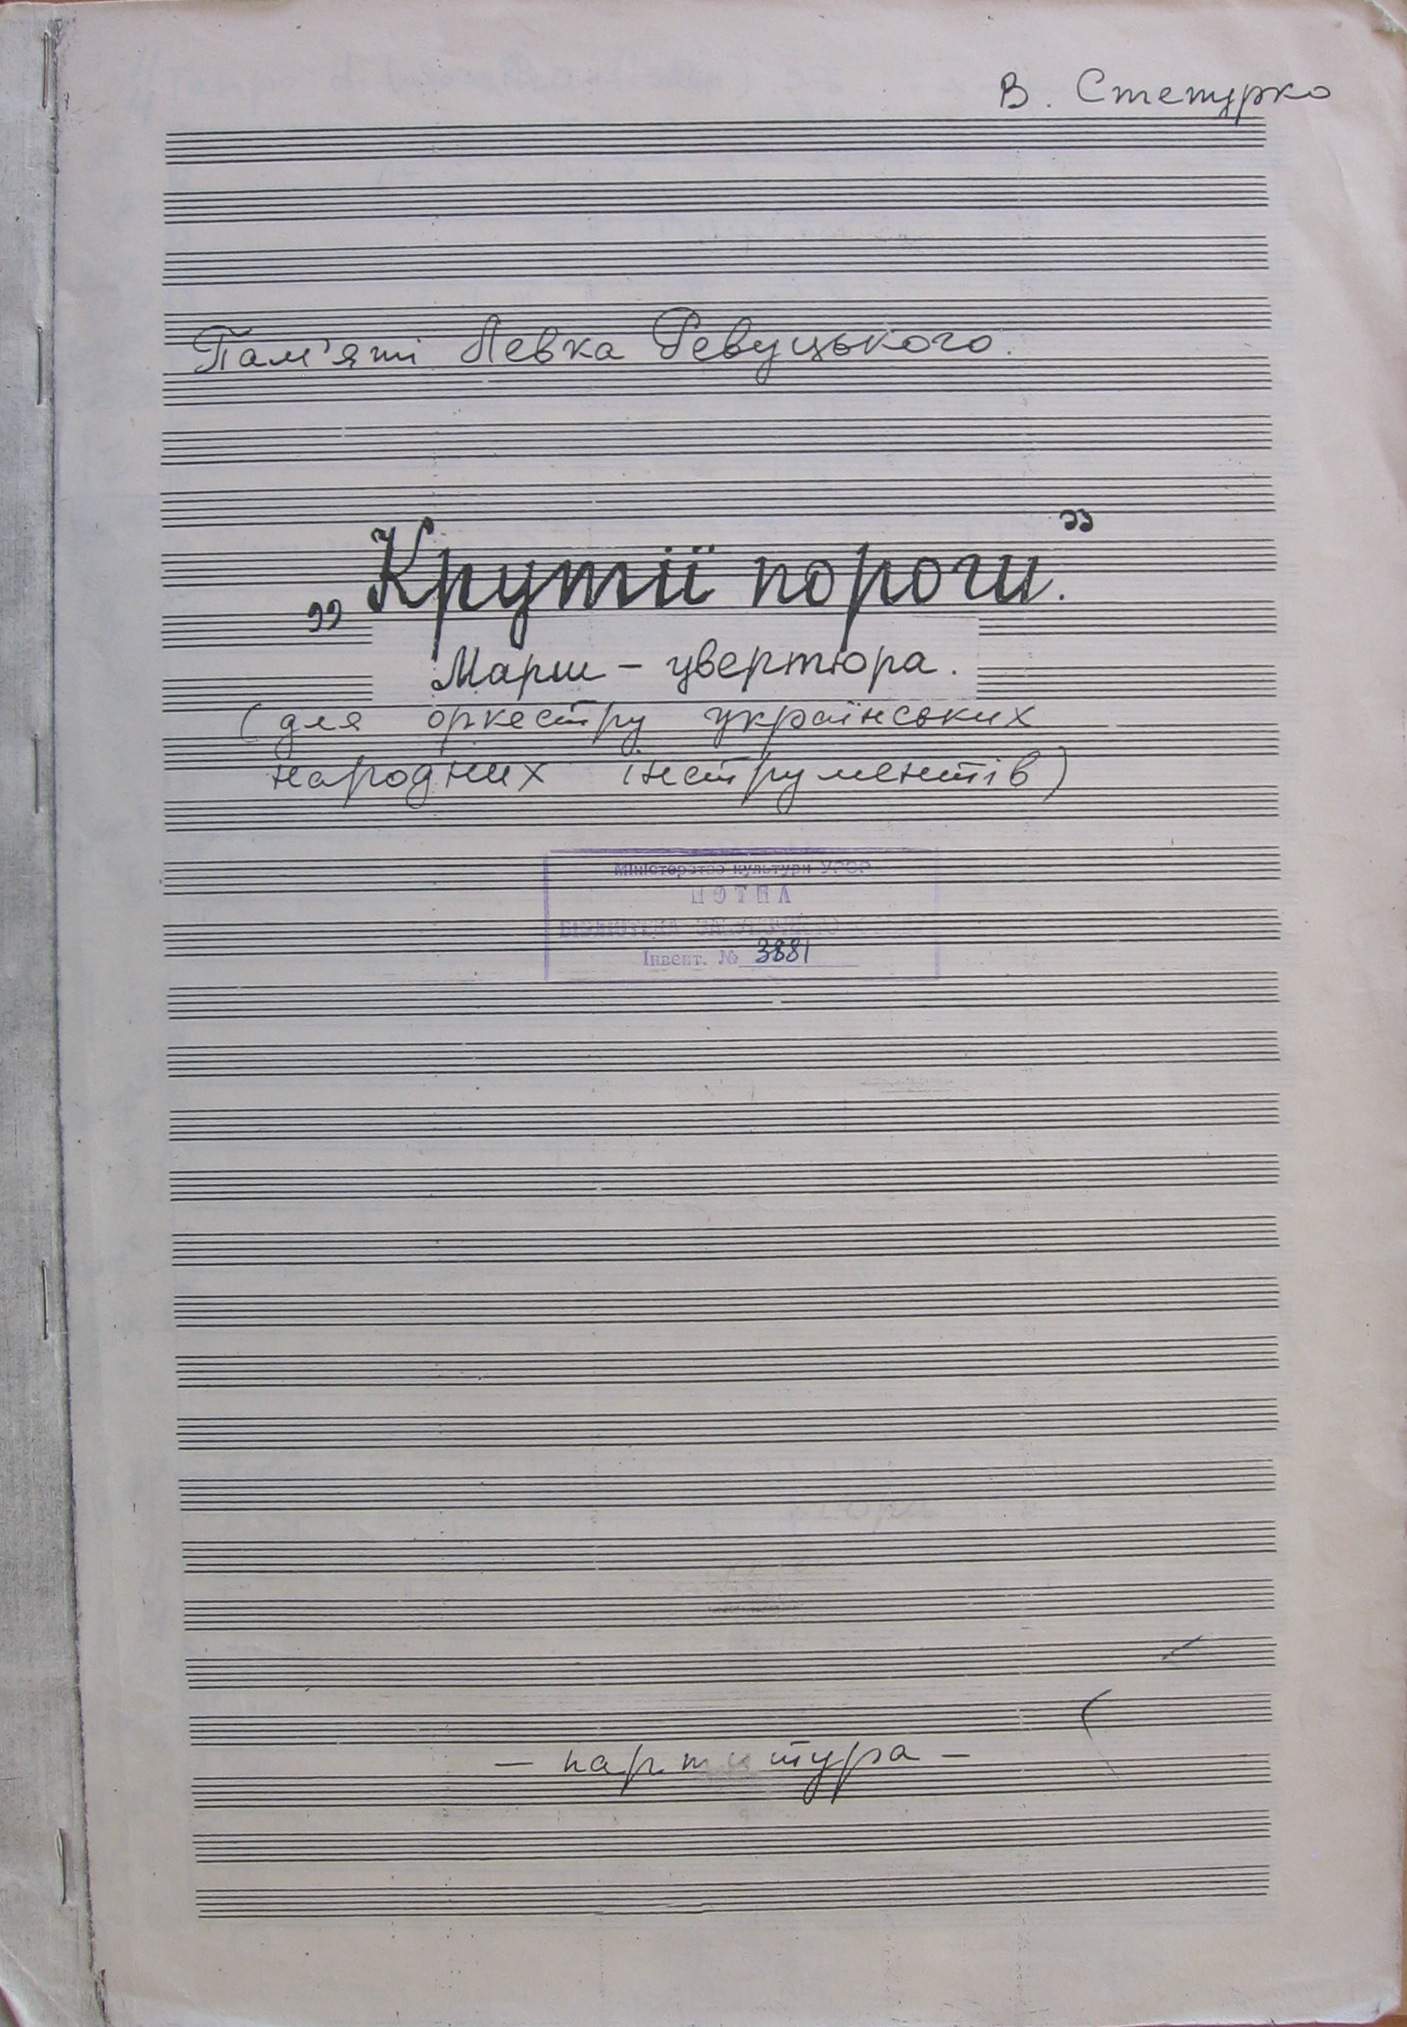 В. Степурко
Пам'яті Левка Ревуцького.
„Крутії пороги."
Марш - увертюра.
(для оркестру українських
народних інструментів)
Міністерство культури УРСР
НОТНА
Інвент. № 3881
- партитура -